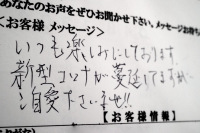 あなたのお声をぜひお聞かせ下さい。メッセージお待ち
<お客様 メッセージ>
いつも楽しみにしております。
新型コロナが蔓延してますが
ご自愛下さいませ!!
【お客様情報】